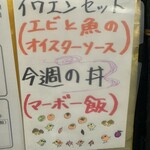 イワエンセット
(エビと魚の
オイスターソース)
今週の丼
(マーボー飯)